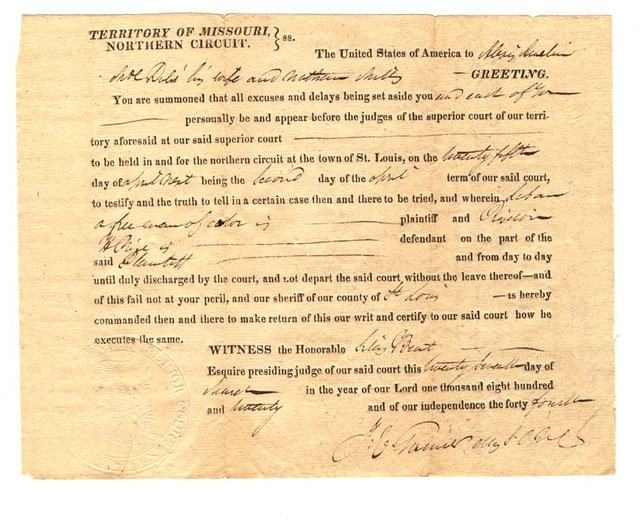 TERRITORY OF MISSOURI,
NORTHERN CIRCUIT. } ss.
The United States of America to
his wife and — GREETING.
You are summoned that all excuses and delays being set aside you and each of you
personally be and appear before the judges of the superior court of our terri-
tory aforesaid at our said superior court
to be held in and for the northern circuit at the town of St. Louis, on the twenty fifth
day of april next being the second day of the april term of our said court,
to testify and the truth to tell in a certain case then and there to be tried, and wherein
a free man of color is plaintiff and
is defendant on the part of the
said Plaintiff and from day to day
until duly discharged by the court, and not depart the said court without the leave thereof—and
of this fail not at your peril, and our sheriff of our county of St Louis —is hereby
commanded then and there to make return of this our writ and certify to our said court how he
executes the same.
WITNESS the Honorable Silas Bent
Esquire presiding judge of our said court this twenty seventh day of
march in the year of our Lord one thousand eight hundred
and twenty and of our independence the forty fourth